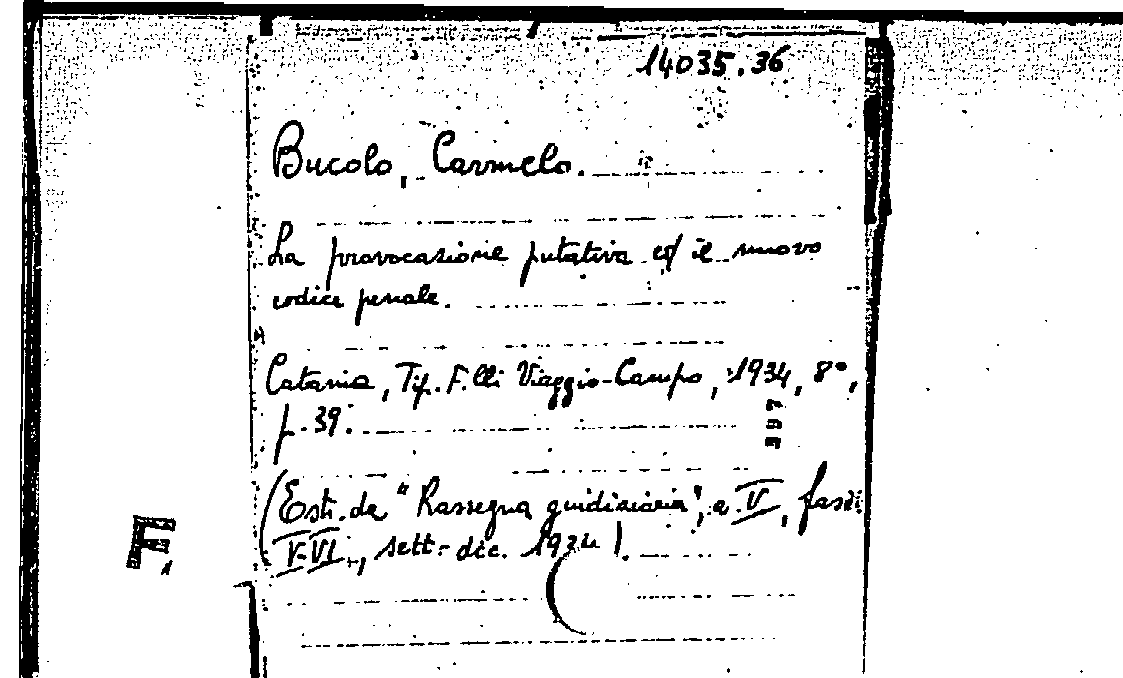 14035.36
Bucolo, Carmelo.
La provocazione putativa ed il nuovo
codice penale.
Catania, Tip. F.lli Viaggio-Campo, 1934, 8°,
p. 39.
397
(Estr. da "Rassegna giudiziaria", a. V, fasc.
V-VI, sett.-dic. 1934).
F,